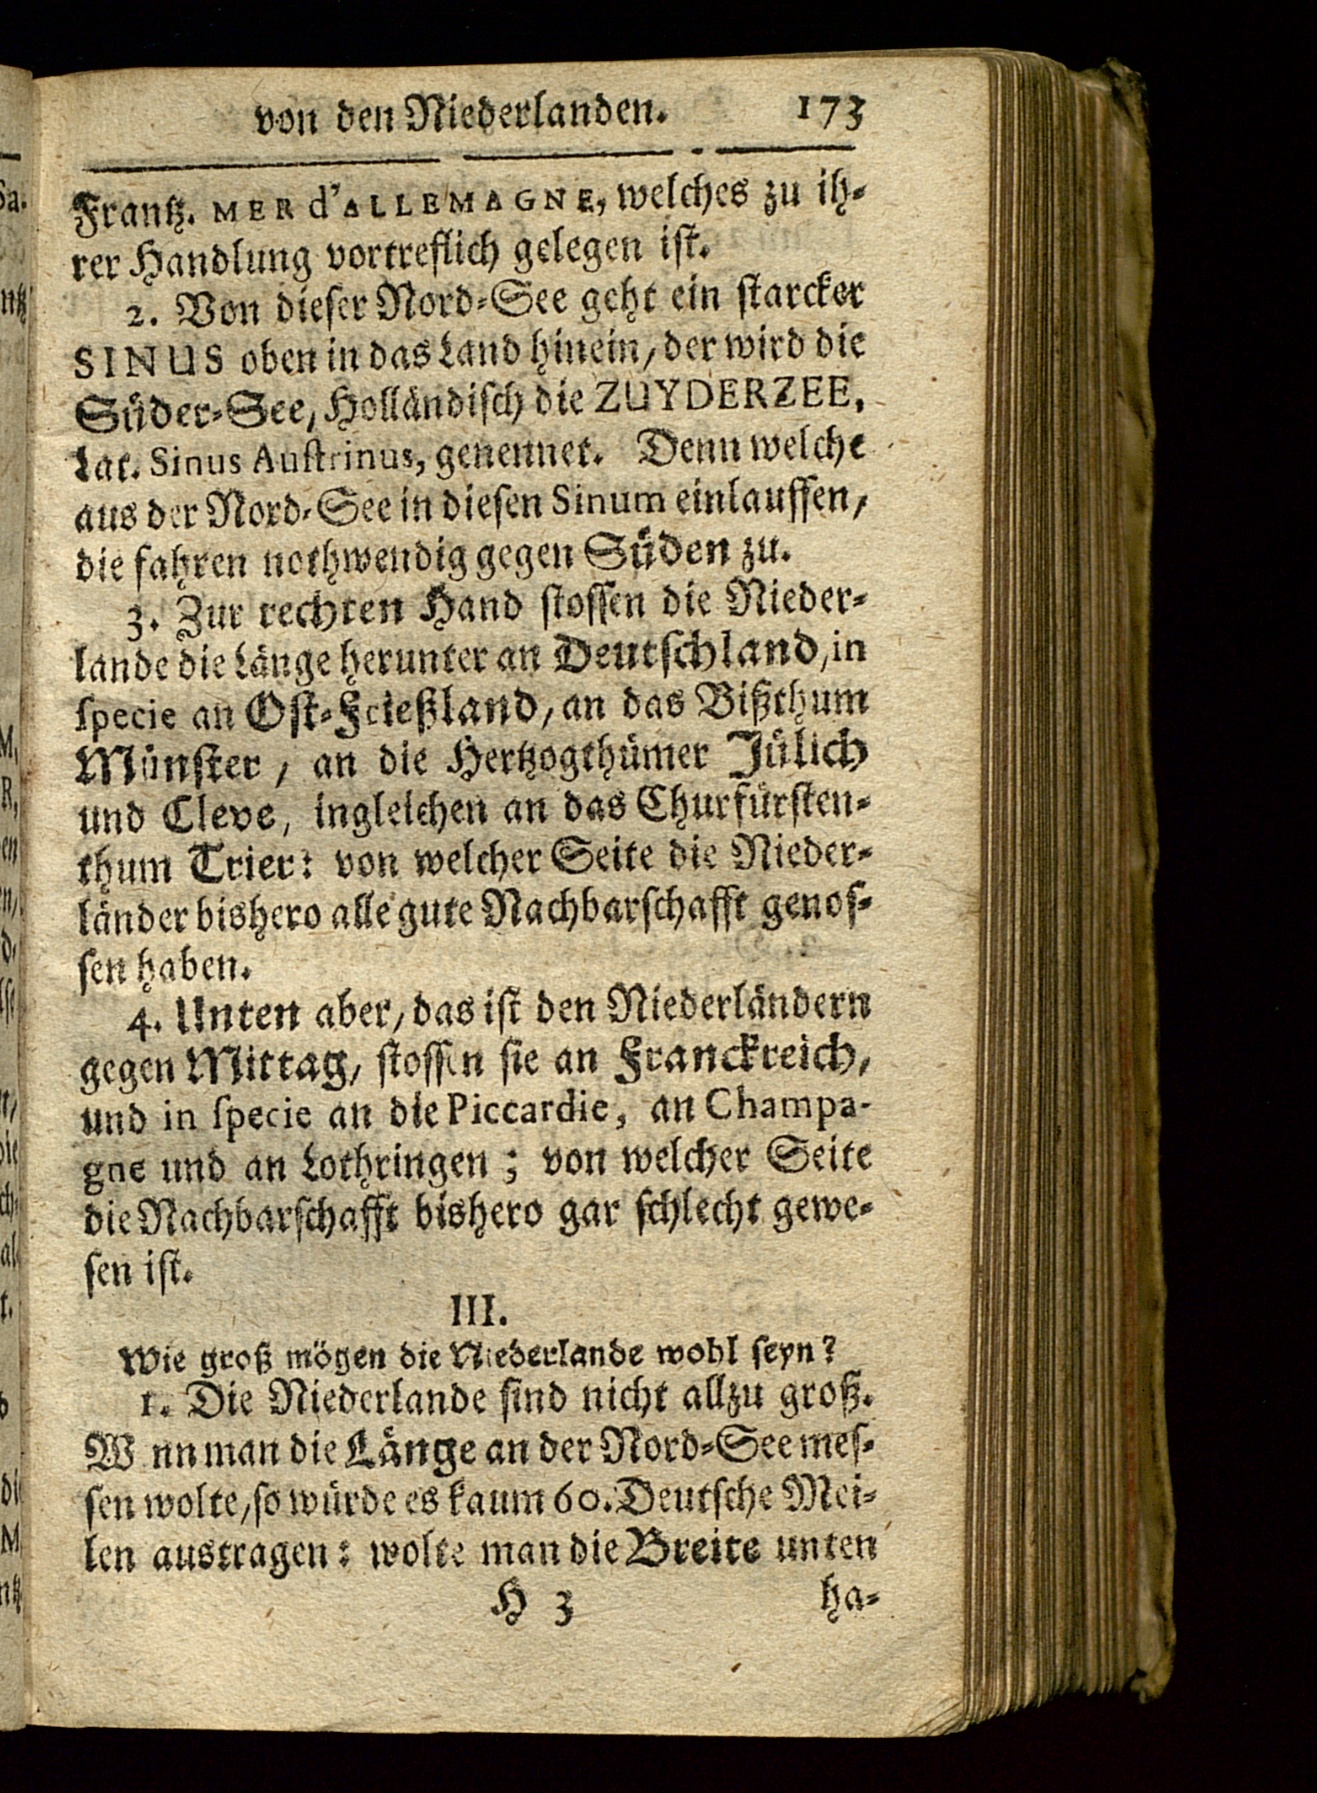 von den Niederlanden. 173
Frantz. MER d'ALLEMAGNE, welches zu ih-
rer Handlung vortreflich gelegen ist.
2. Von dieser Nord-See geht ein starcker
SINUS oben in das Land hinein, der wird die
Süder-See, Holländisch die ZUYDERZEE,
Lat. Sinus Austrinus, genennet. Denn welche
aus der Nord-See in diesen Sinum einlauffen,
die fahren nothwendig gegen Süden zu.
3. Zur rechten Hand stossen die Nieder-
lande die Länge herunter an Deutschland, in
specie an Ost-Frießland, an das Bißthum
Münster, an die Hertzogthümer Jülich
und Cleve, ingleichen an das Churfürsten-
thum Trier: von welcher Seite die Nieder-
länder bishero alle gute Nachbarschafft genos-
sen haben.
4. Unten aber, das ist den Niederländern
gegen Mittag, stossen sie an Franckreich,
und in specie an die Piccardie, an Champa-
gne und an Lothringen; von welcher Seite
die Nachbarschafft bishero gar schlecht gewe-
sen ist.
III.
Wie groß mögen die Niederlande wohl seyn?
1. Die Niederlande sind nicht allzu groß.
W nn man die Länge an der Nord-See mes-
sen wolte, so würde es kaum 60. Deutsche Mei-
len austragen: wolte man die Breite unten
H 3 ha-